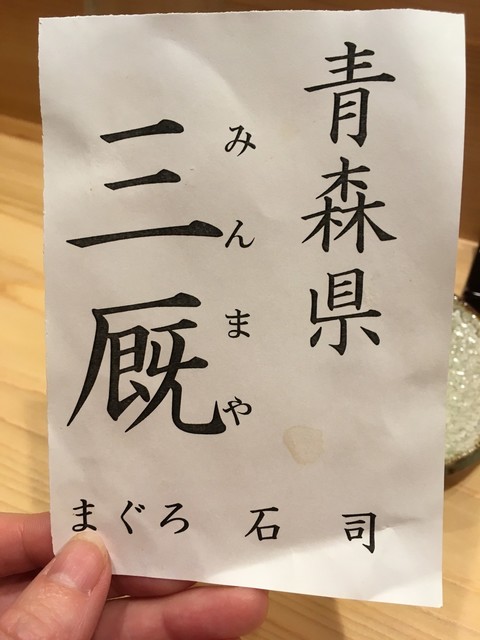 青森県
三厩
みんまや
まぐろ 石司